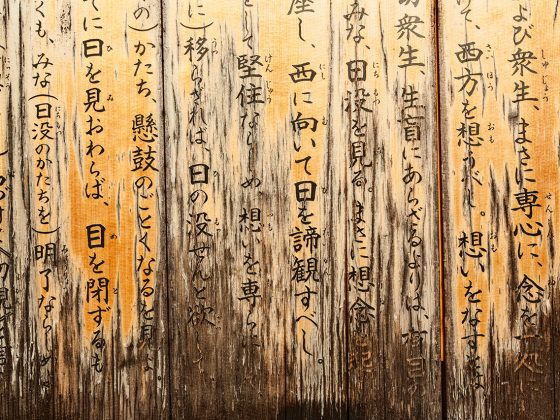 よび衆生、まさに専心に、念を一処に
けて、西方を想うべし。想いをなすとは
切衆生、生盲にあらざるよりは、有目
みな、日没を見る。まさに想念を起
座し、西に向いて日を諦観すべし。
して堅住ならしめ、想いを専らに
に）移らざれば、日の没せんと欲
の）かたち、懸鼓のごとくなるを見よ。
でに日を見おわらば、目を閉ずるも
くも、みな（日没のかたちを）明了ならしめ